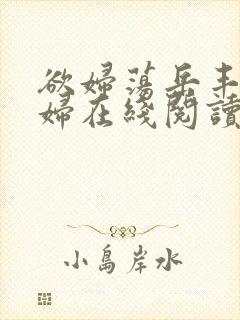 欲婦蕩岳丰
婦在綫閱讀
小島岸水